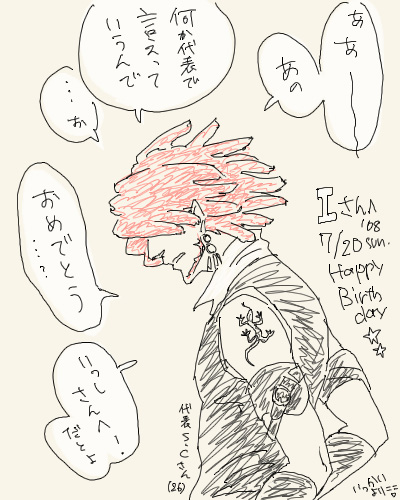 ああ——
あの
何か代表で
言えって
いうんで
…お
おめでとう
…?
いっしー
さんへ!
だとよ
Iさんへ
'08
7/20 sun.
Happy
Birth
day
代表S・Cさん
(26)